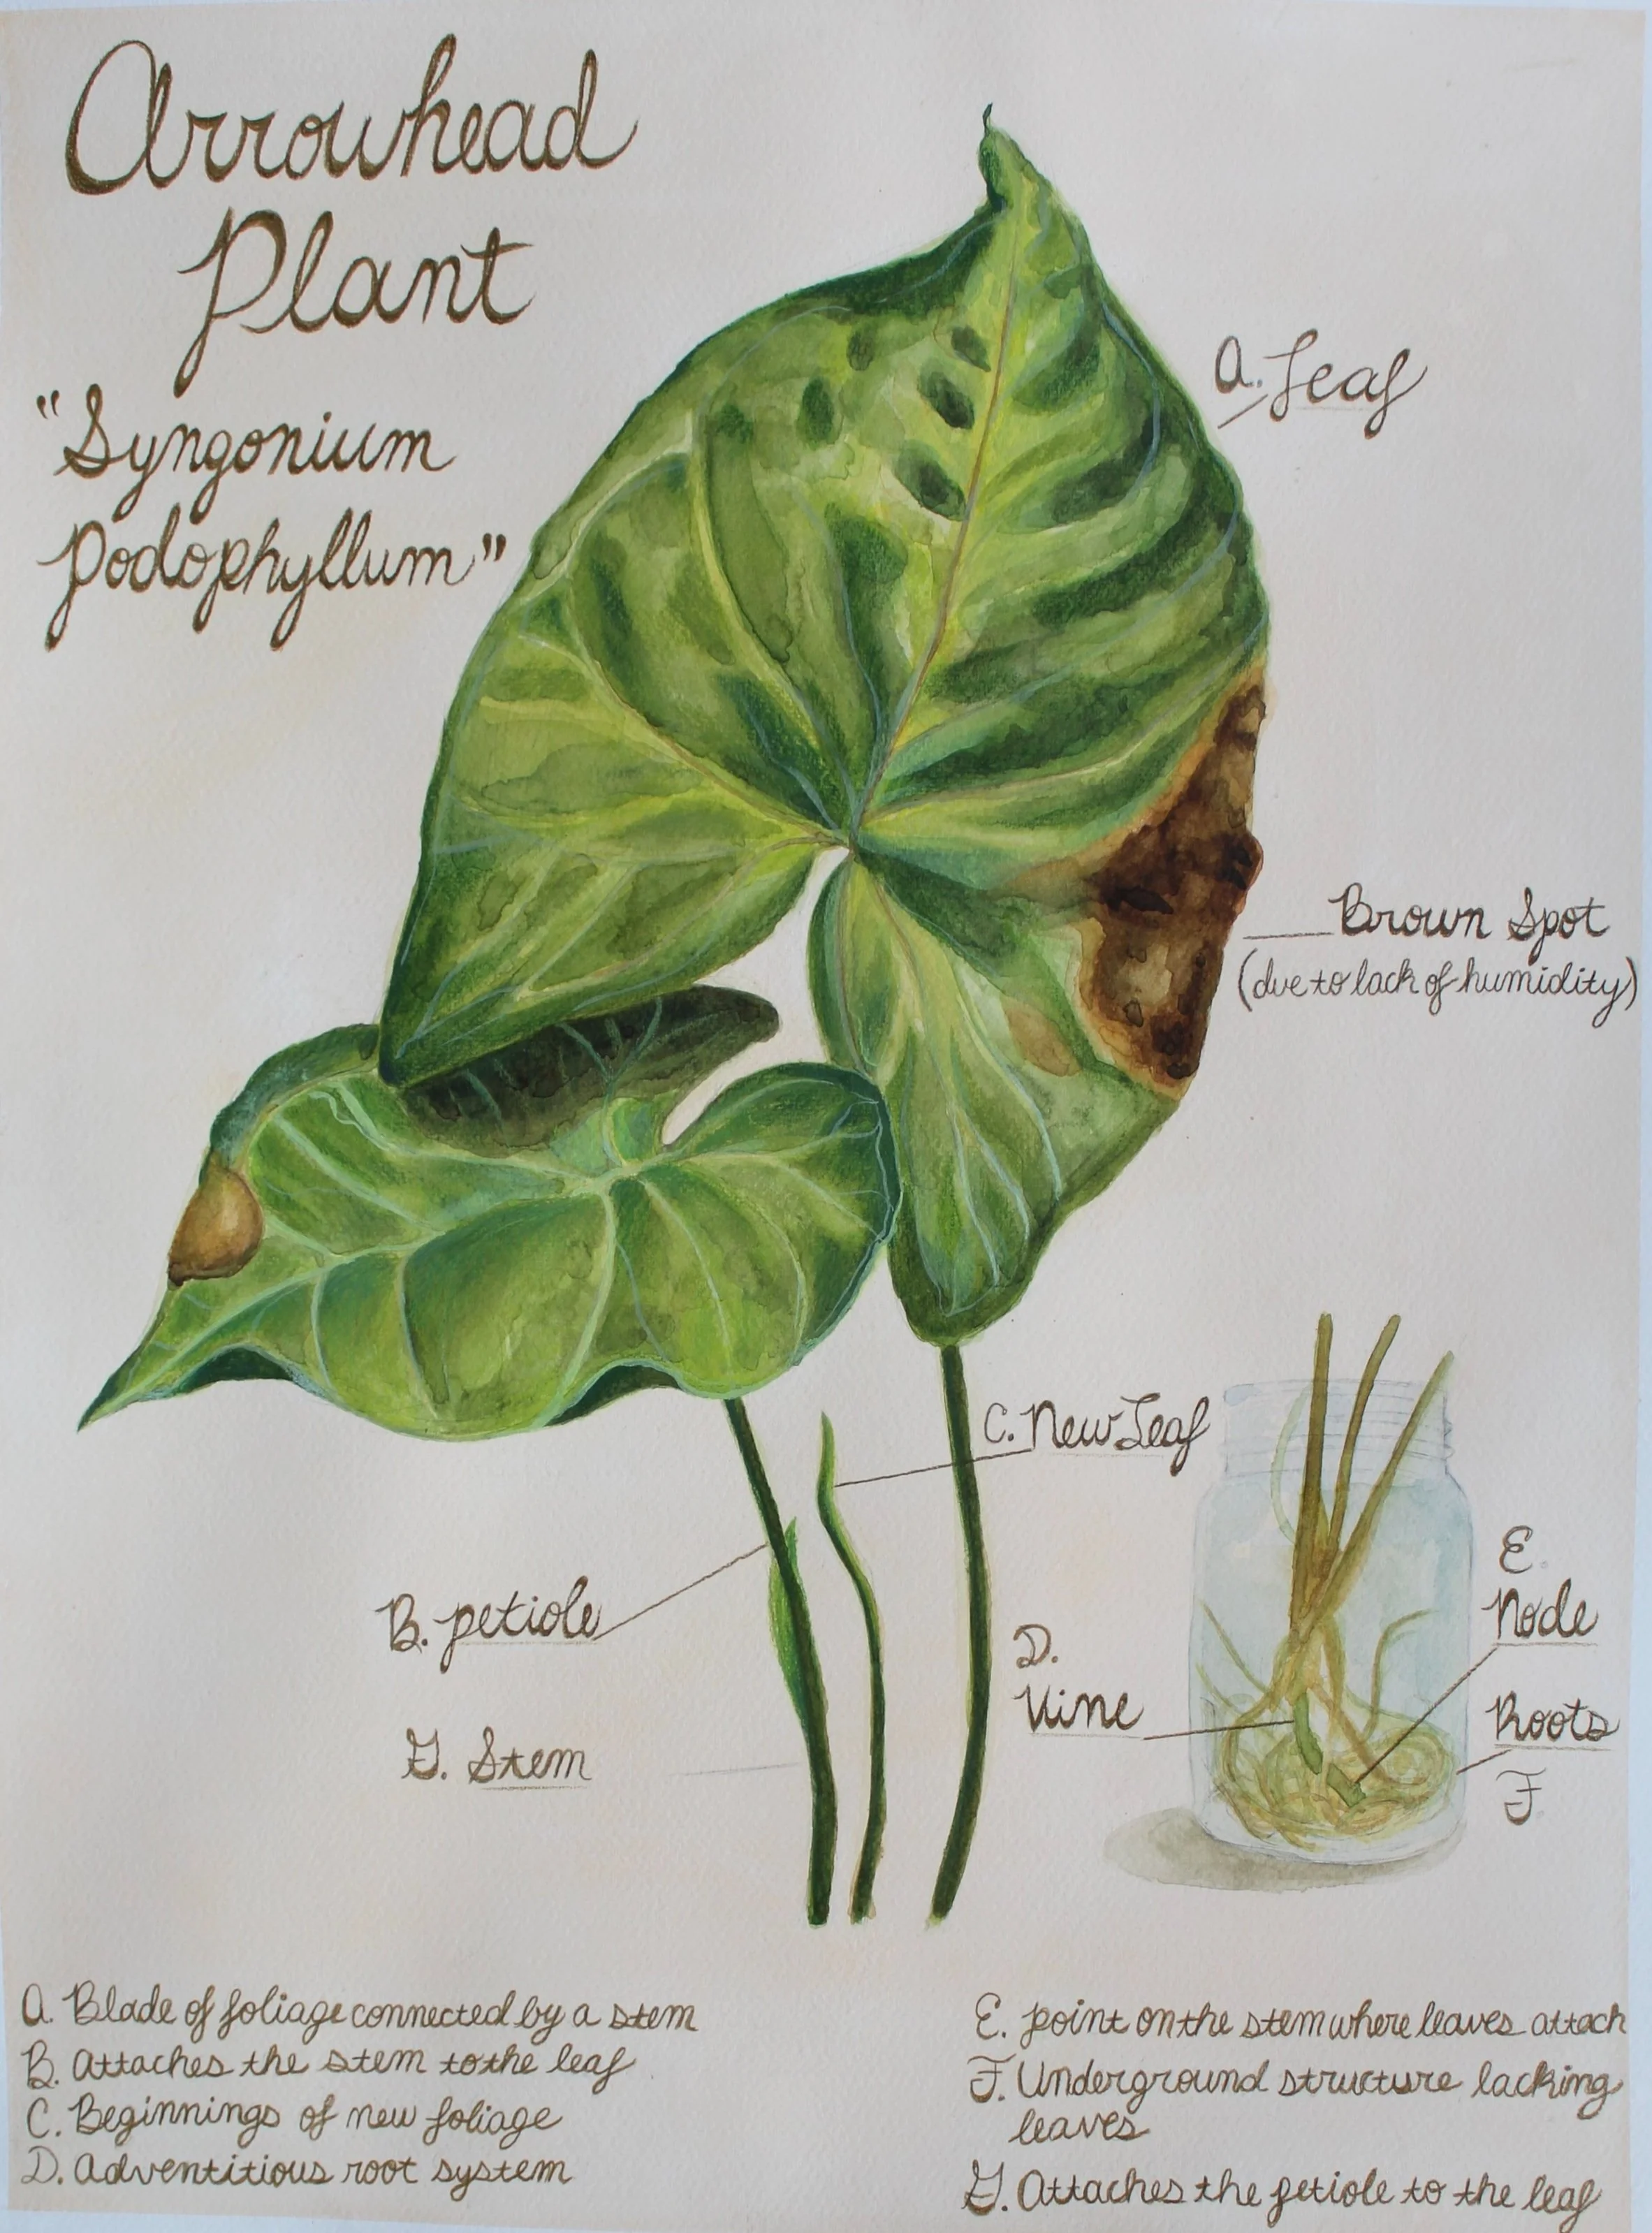 Arrowhead
Plant
"Syngonium
Podophyllum"
A. Leaf
Brown Spot
(due to lack of humidity)
C. New Leaf
B. petiole
D.
Vine
E.
Node
Roots
F
G. Stem
A. Blade of foliage connected by a stem
B. Attaches the stem to the leaf
C. Beginnings of new foliage
D. Adventitious root system
E. point on the stem where leaves attach
F. Underground structure lacking
leaves
G. Attaches the petiole to the leaf